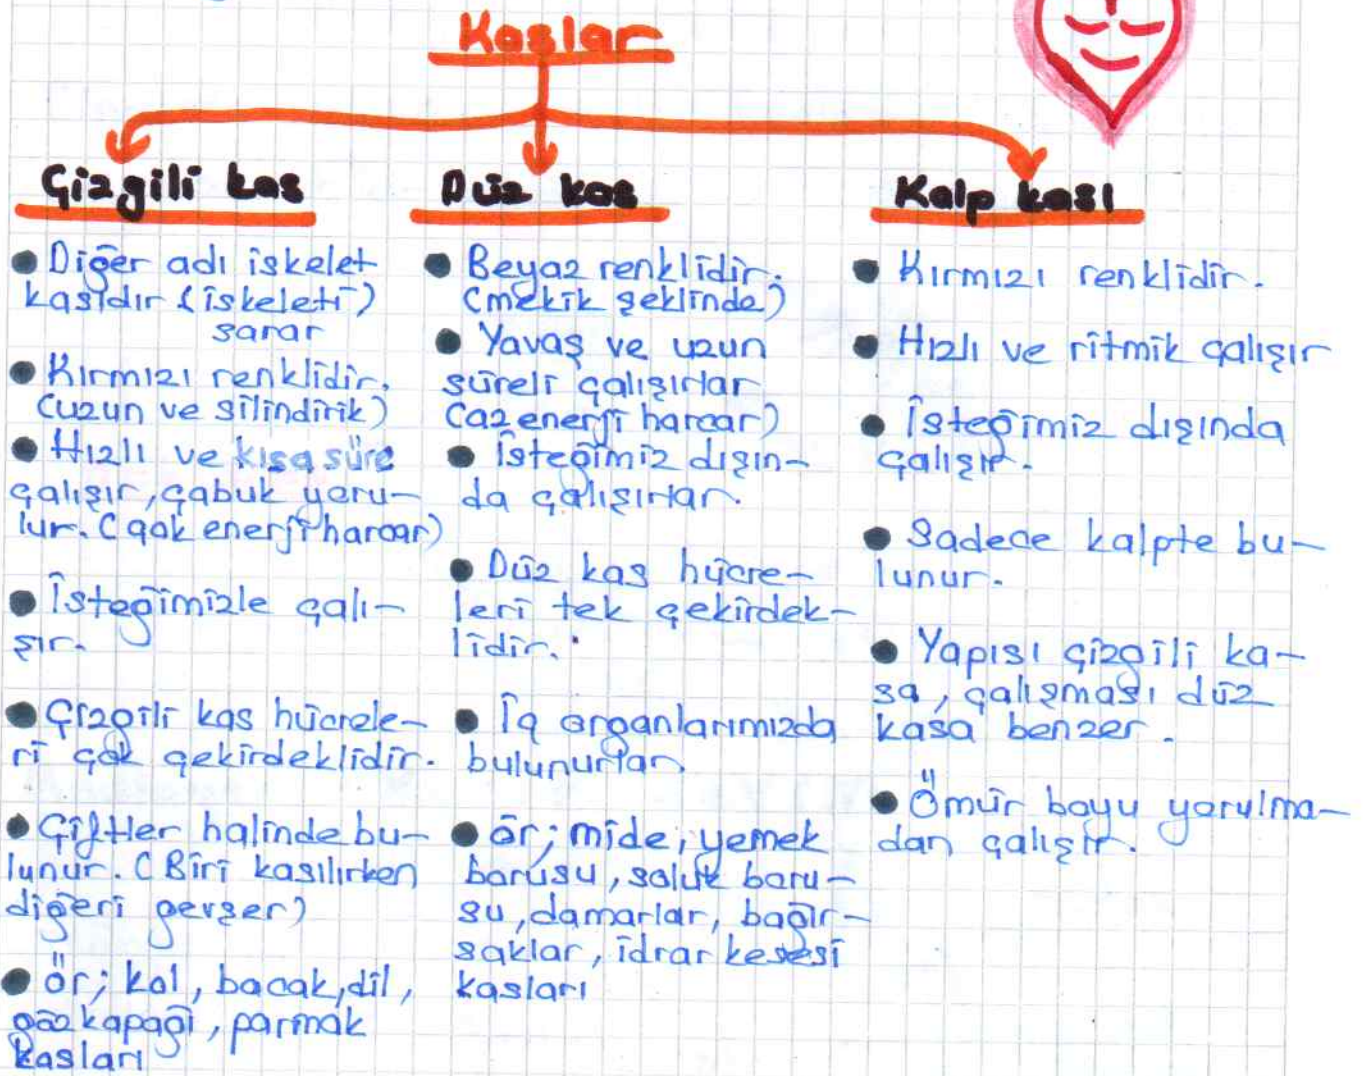 Kaslar
Çizgili kas
● Diğer adı iskelet
kasıdır (iskeleti)
sarar
● Kırmızı renklidir.
(uzun ve silindirik)
● Hızlı ve kısa süre
çalışır, çabuk yoru-
lur. (çok enerji harcar)
● İsteğimizle çalı-
şır.
● Çizgili kas hücrele-
ri çok çekirdeklidir.
● Çiftler halinde bu-
lunur. (Biri kasılırken
diğeri gevşer)
● ör; kol, bacak, dil,
göz kapağı, parmak
kasları
Düz kas
● Beyaz renklidir.
(mekik şeklinde)
● Yavaş ve uzun
süreli çalışırlar
(az enerji harcar)
● İsteğimiz dışın-
da çalışırlar.
● Düz kas hücre-
leri tek çekirdek-
lidir.
● İç organlarımızda
bulunurlar.
● ör; mide, yemek
borusu, soluk boru-
su, damarlar, bağır-
saklar, idrar kesesi
kasları
Kalp kası
● Kırmızı renklidir.
● Hızlı ve ritmik çalışır
● İsteğimiz dışında
çalışır.
● Sadece kalpte bu-
lunur.
● Yapısı çizgili ka-
sa, çalışması düz
kasa benzer.
● Ömür boyu yorulma-
dan çalışır.